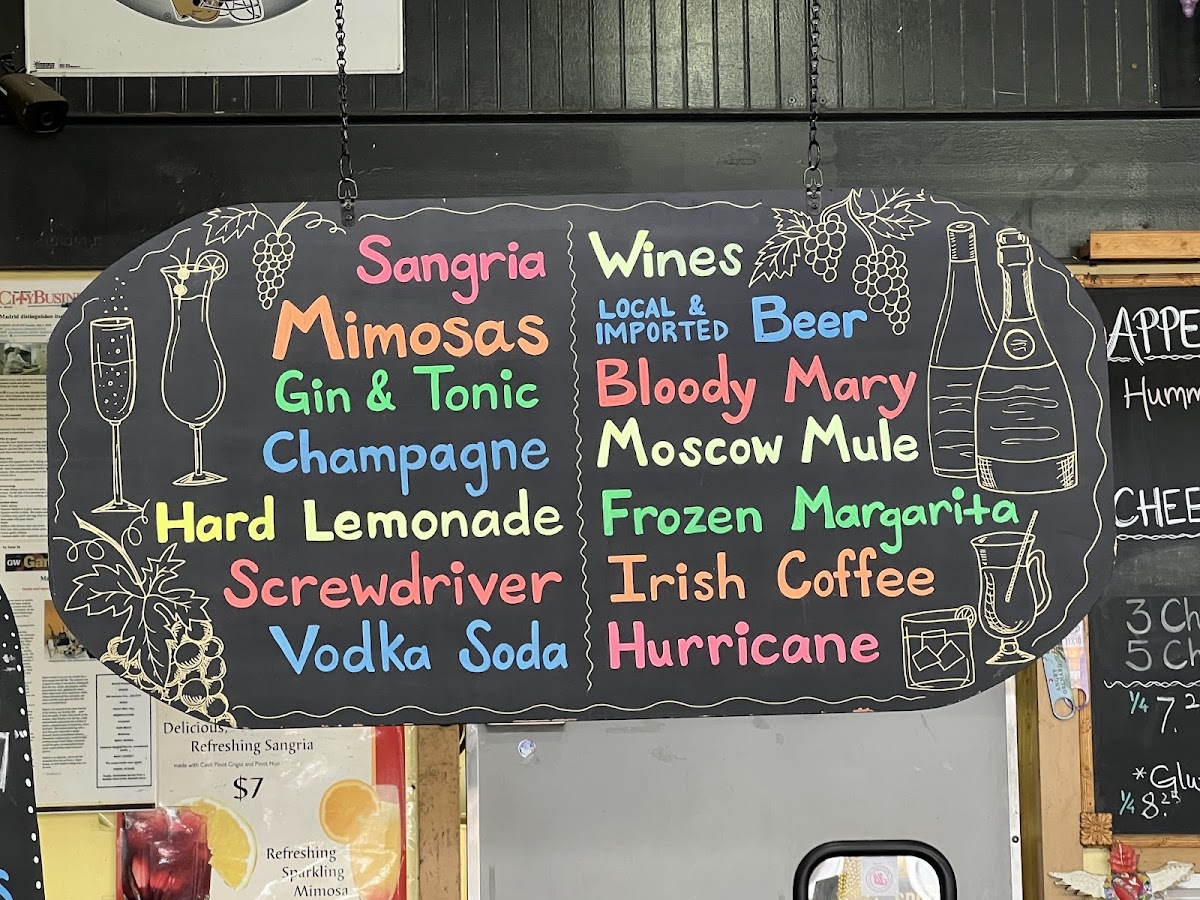 Sangria
Mimosas
Gin & Tonic
Champagne
Hard Lemonade
Screwdriver
Vodka Soda
Wines
LOCAL &
IMPORTED Beer
Bloody Mary
Moscow Mule
Frozen Margarita
Irish Coffee
Hurricane
CITYBUSIN
Delicious,
Refreshing Sangria
made with Cavit Pinot Grigio and Pinot Noir
$7
Refreshing
Sparkling
Mimosa
APPE
Humm
CHEE
3 Ch
5 Ch
1/4 7.2
*Glu
1/4 8.25